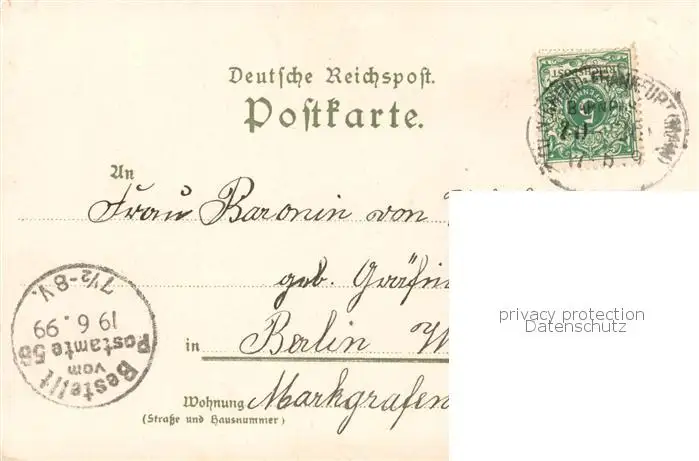 Deutsche Reichspost.
Postkarte.
An
Frau Baronin von
geb. Gräfin
in Berlin W
Wohnung Markgrafen
(Straße und Hausnummer)
REICHSPOST
5
FRANKFURT (MAIN)
Bestellt
vom
Postamte 58
19 6. 99
7½-8V.
privacy protection
Datenschutz